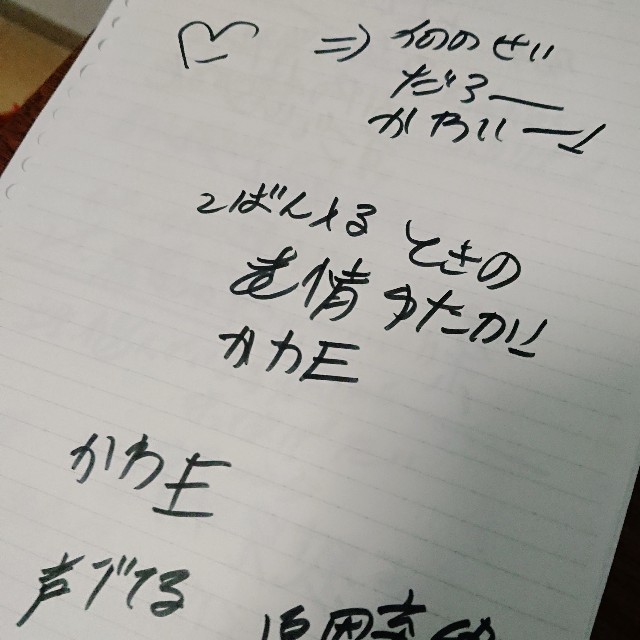 ♡ ⇒ 何のせい
だろー
かわいー
こばんんる ときの
表情 ゆたかに
カカE
かわE
声でてる